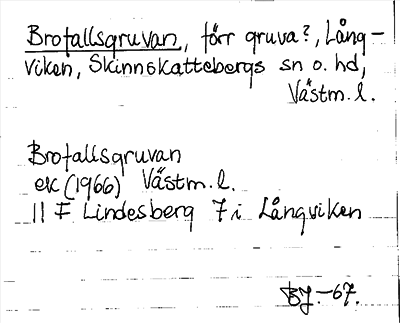 Brofallsgruvan, förr gruva?, Lång-
viken, Skinnskattebergs sn o. hd,
Västm. l.
Brofallsgruvan
ek (1966) Västm. l.
11 F Lindesberg 7 i Långviken
BJ.-67.